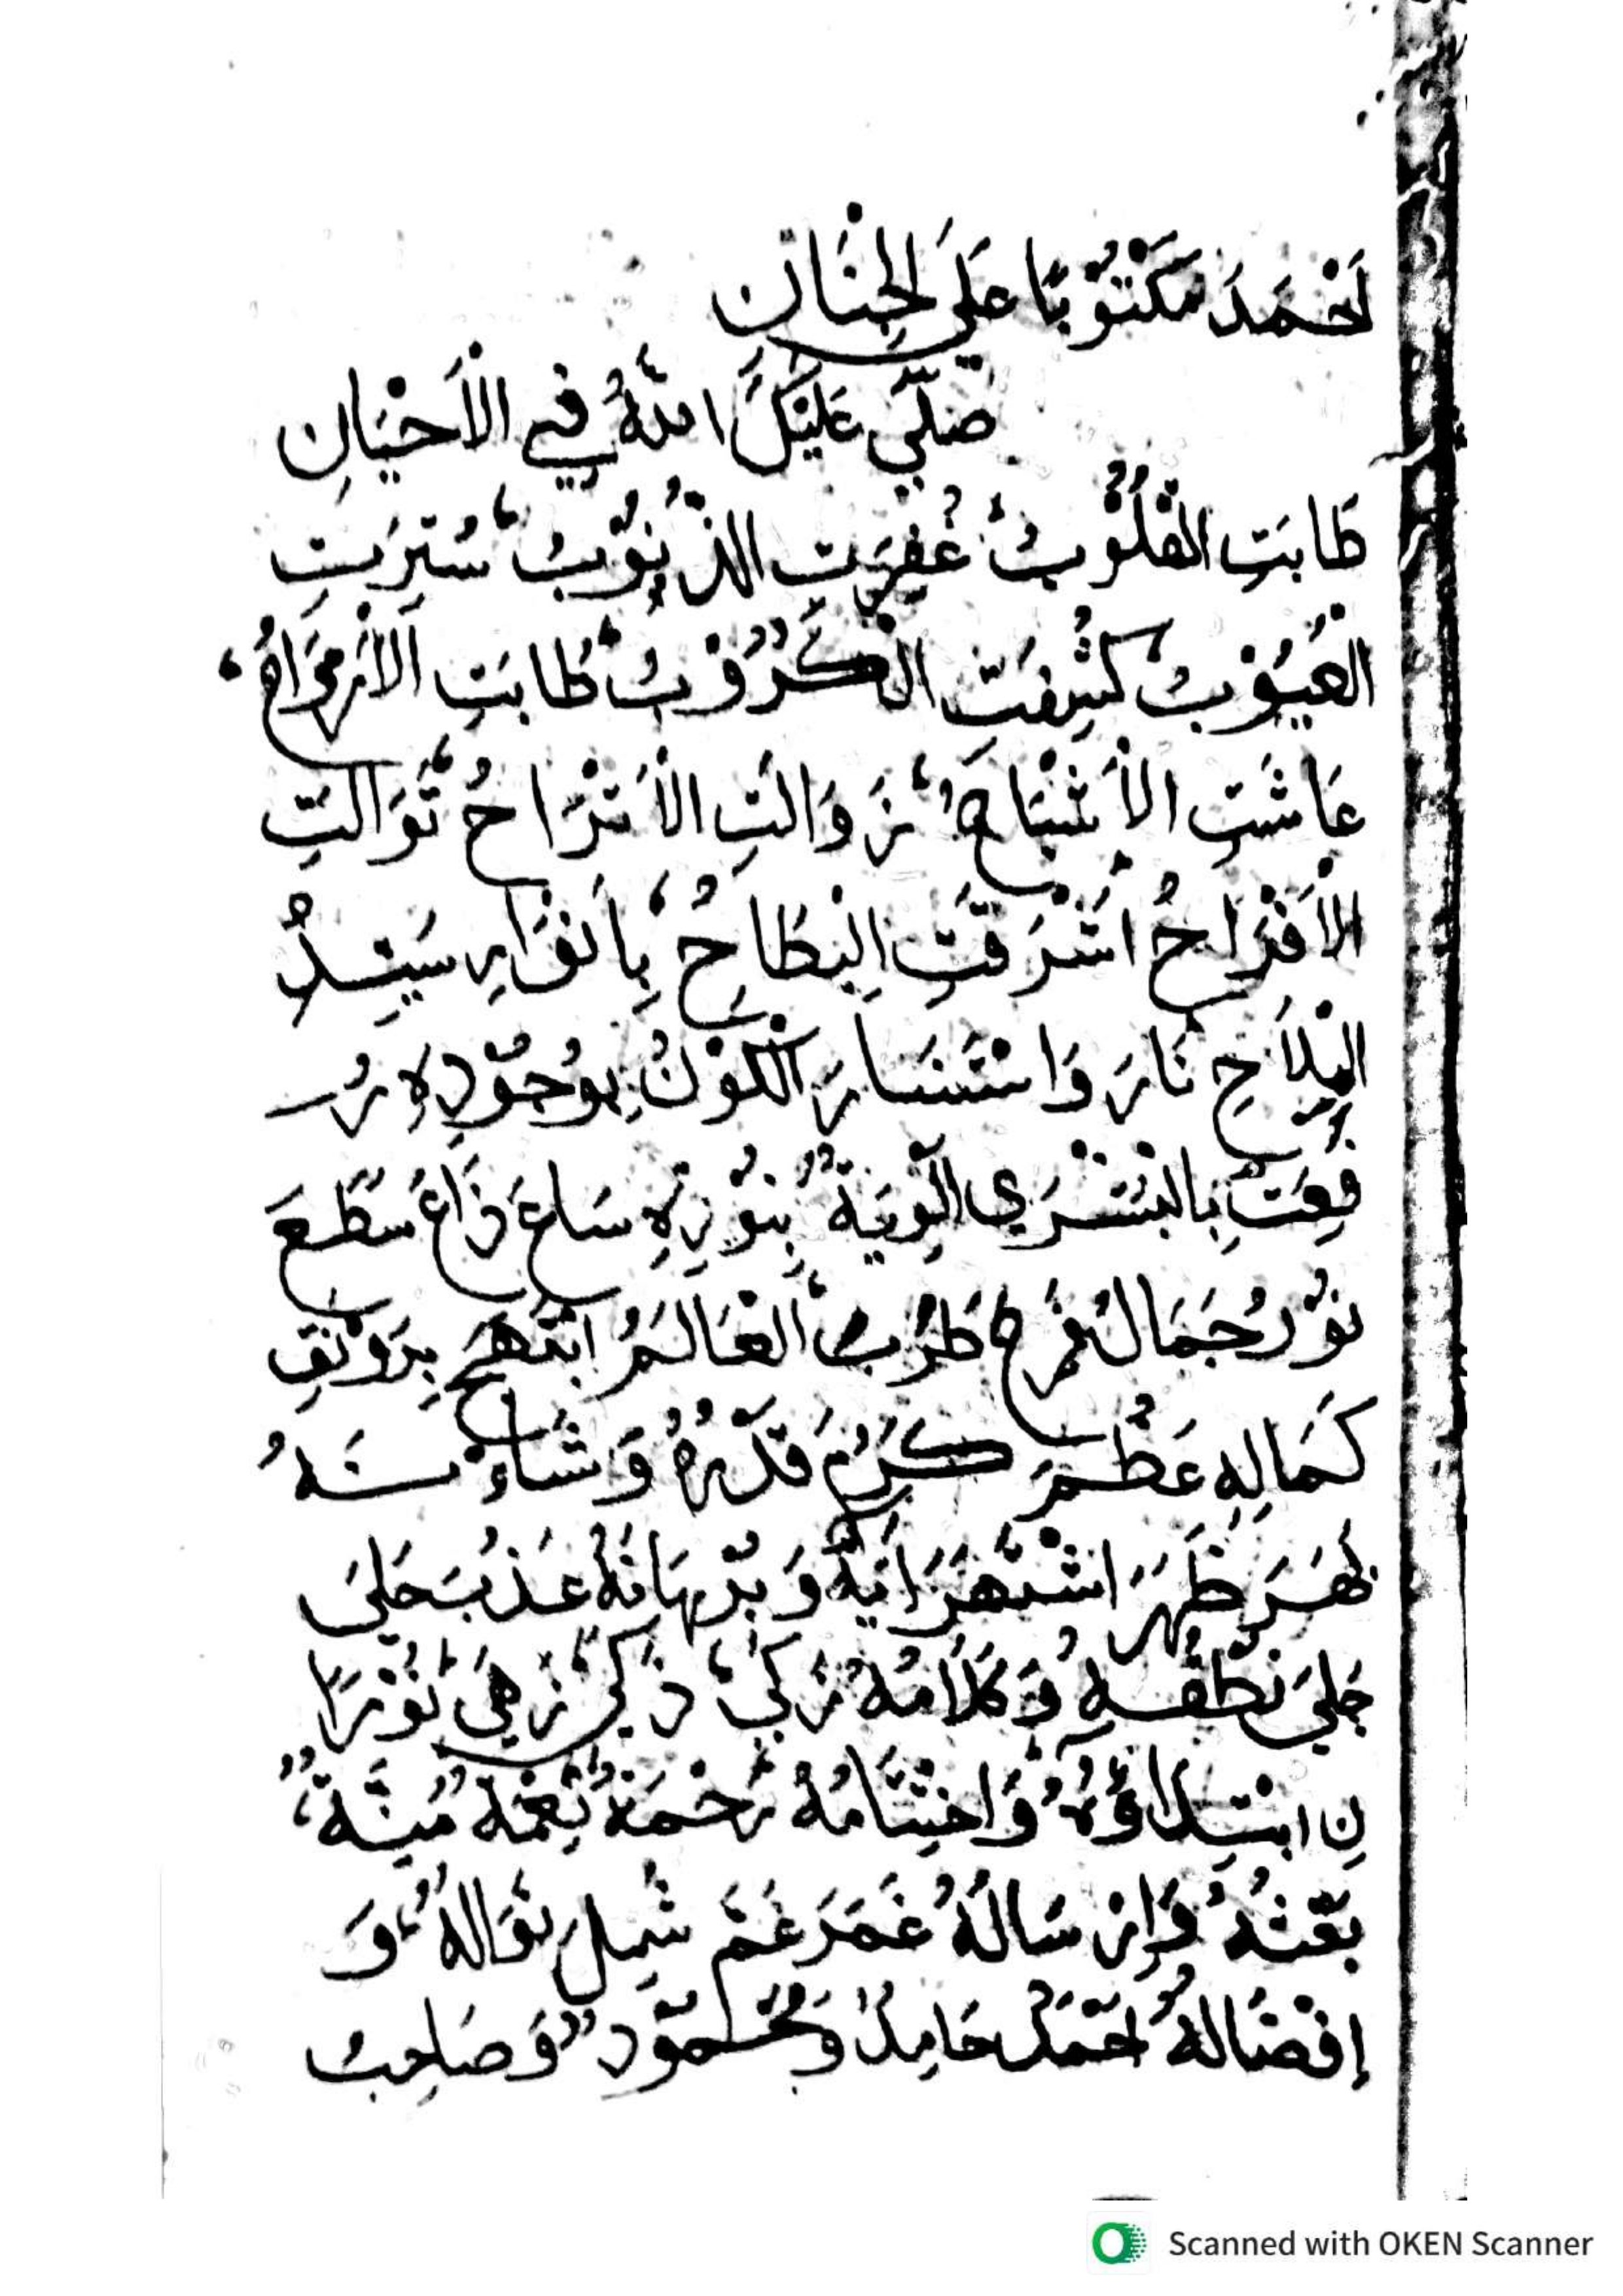 اَحْمَدَ مَكْتُوْبًا عَلَي الْجِنَانِ
صَلّٰي عَلَيْكَ اللّٰهُ فِي الْاَحْيَانِ
طَابَتِ الْقُلُوْبُ غُفِرَتِ الذُّنُوْبُ سُتِرَتِ
الْعُيُوْبُ كُشِفَتِ الْكُرُوْبُ طَابَتِ الْاَرْوَاحُ
عَاشَتِ الْاَشْبَاحُ زَوَالَتِ الْاَتْرَاحُ تَوَالَتِ
الْاَفْرَاحُ اَشْرَقَتِ الْبِطَاحُ بِاَنْوَارِ سَيِّدِ
الْمِلَاحِ نَارَ وَاسْتَنَارَ الْكَوْنُ بِوُجُوْدِهِ رُ
فِعَتْ بِالْبُشْرَي اَلْوِيَةٌ بِنُوْرِهِ سَاغَ ذَاعَ سَطَعَ
نُوْرُ جَمَالُ فَرِحَ طَرُبَ الْعَالَمُ ابْتَهَجَ بِرَوْنَقِ
كَمَالِهِ عَظُمَ كَرُمَ قَدْرُهُ وَشَاءْنُهُ
بَهَرَ ظَهَرَ اشْتَهَرَ اٰيَةٌ وَبُرْهَانُهُ عَذُبَ حَلَيَ
جَلِيَ نُطْقُهِ وَكَلَامُهُ زَكِيَ ذَكِيَ زَهِيَ نُوْرًا
نِ ابْتِدَاؤُهُ وَاخْتِتَامُهُ رَحْمَةٌ نِعْمَةٌ مِنَّةٌ
بَعْثُهُ وَاِرْسَالُهُ غَمَرَ عَمَّ شَمِلَ نَوَالُهُ وَ
اِفْضَالُهُ اَحْمَدُ حَامِدٌ وَمَحْمُوْدٌ وَصَاحِبُ
Scanned with OKEN Scanner